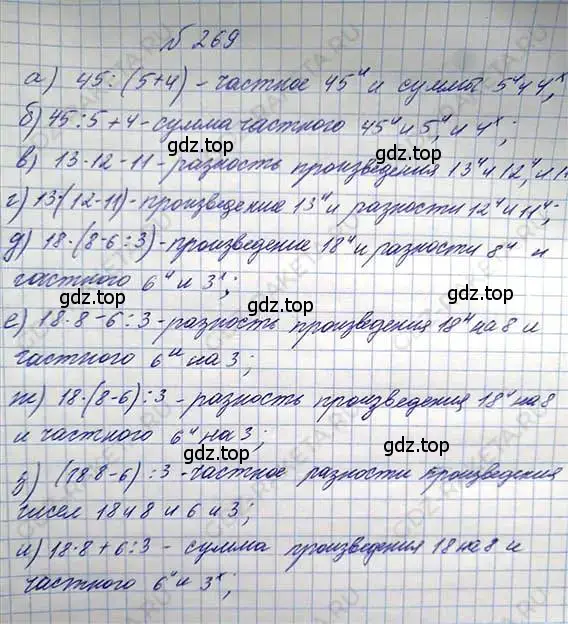 № 269
а) 45 : (5+4) - частное 45ᵘ и суммы 5ᵘ и 4ˣ;
б) 45 : 5 + 4 - сумма частного 45ᵘ и 5, и 4ˣ;
в) 13 · 12 - 11 - разность произведения 13ᵘ и 12, и
г) 13 · (12 - 11) - произведение 13ᵘ и разности 12ᵘ и 11ᵘ;
д) 18 · (8 - 6 : 3) - произведение 18ᵘ и разности 8ᵘ и
частного 6ᵘ и 3ˣ;
е) 18 · 8 - 6 : 3 - разность произведения 18ᵘ на 8 и
частного 6ᵘ на 3;
ж) 18 · (8 - 6) : 3 - разность произведения 18ᵘ на 8
и частного 6ᵘ на 3;
з) (18 8 - 6) : 3 - частное разности произведения
чисел 18 и 8 и 6 и 3;
и) 18 · 8 + 6 : 3 - сумма произведения 18 на 8 и
частного 6ᵘ и 3ˣ;
gdz.top
gdz.top
gdz.top
gdz.top
gdz.top
gdz.top
gdz.top
gdz.top
gdz.top
gdz.top
gdz.top
gdz.top